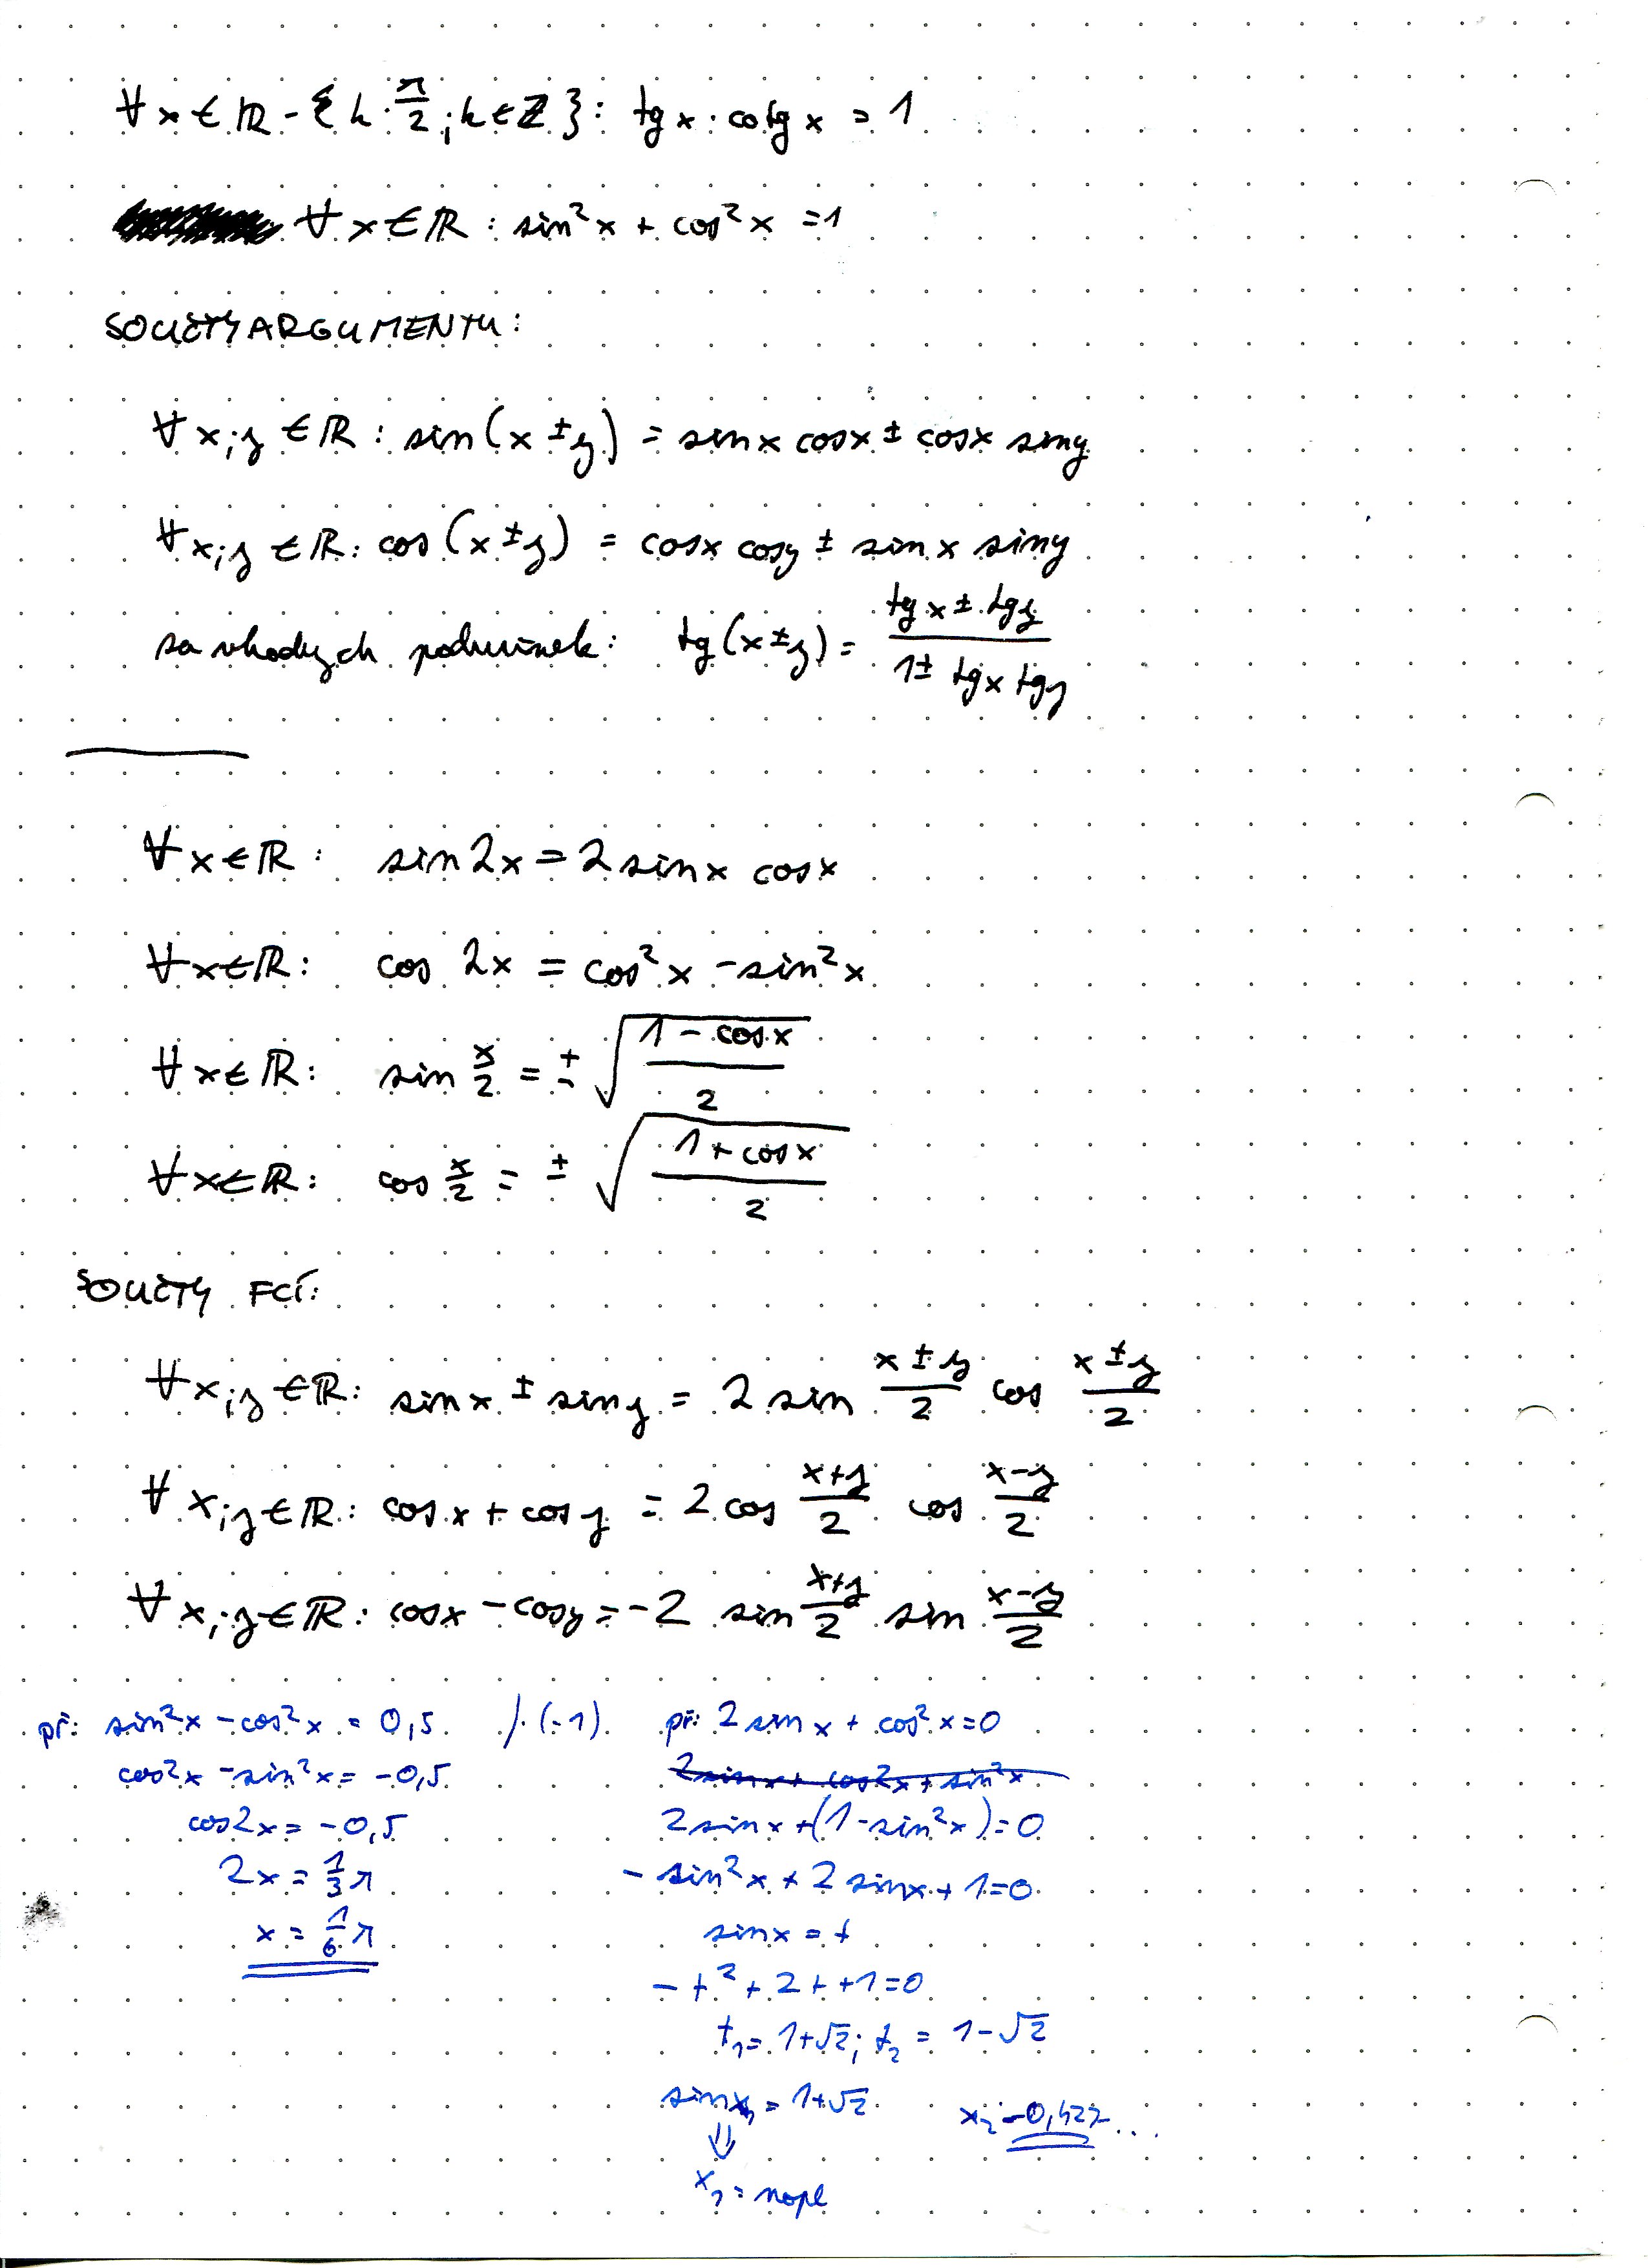 ∀x∈ℝ - {k·π/2; k∈ℤ}: tg x · cotg x = 1
∀x∈ℝ: sin²x + cos²x = 1
SOUČTY ARGUMENTU:
∀x;y ∈ℝ: sin(x±y) = sinx cosx ± cosx siny
∀x;y ∈ℝ: cos(x±y) = cosx cosy ± sinx siny
za vhodých podmínek: tg(x±y) = (tgx ± tgy)/(1± tgx tgy)
∀x∈ℝ: sin2x = 2 sinx cosx
∀x∈ℝ: cos 2x = cos²x - sin²x
∀x∈ℝ: sin x/2 = ± √((1-cosx)/2)
∀x∈ℝ: cos x/2 = ± √((1+cosx)/2)
SOUČTY FCÍ:
∀x;y ∈ℝ: sinx ± siny = 2 sin (x±y)/2 cos (x±y)/2
∀x;y∈ℝ: cosx + cosy = 2 cos (x+y)/2 cos (x-y)/2
∀x;y∈ℝ: cosx - cosy = -2 sin (x+y)/2 sin (x-y)/2
př: sin²x - cos²x = 0,5 /·(-1)
cos²x - sin²x = -0,5
cos2x = -0,5
2x = 1/3 π
x = 1/6 π
př: 2 sinx + cos²x = 0
2sinx + cos²x + sin²x
2sinx + (1-sin²x) = 0
- sin²x + 2 sinx + 1 = 0
sinx = t
- t² + 2t + 1 = 0
t₁ = 1+√2; t₂ = 1-√2
sinx₁ = 1+√2
⇓
x₁ = nope
x₂ = -0,427...